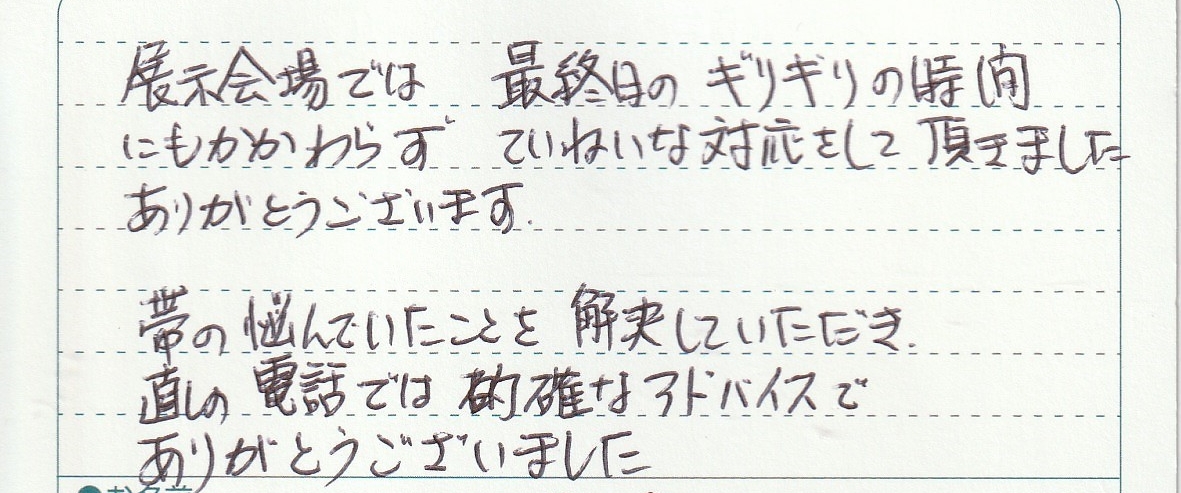 展示会場では 最終日の ギリギリの時間
にもかかわらず ていねいな対応をして頂きました
ありがとうございます.
帯の悩んでいたことを 解決していただき.
直しの 電話では 的確なアドバイスで
ありがとうございました